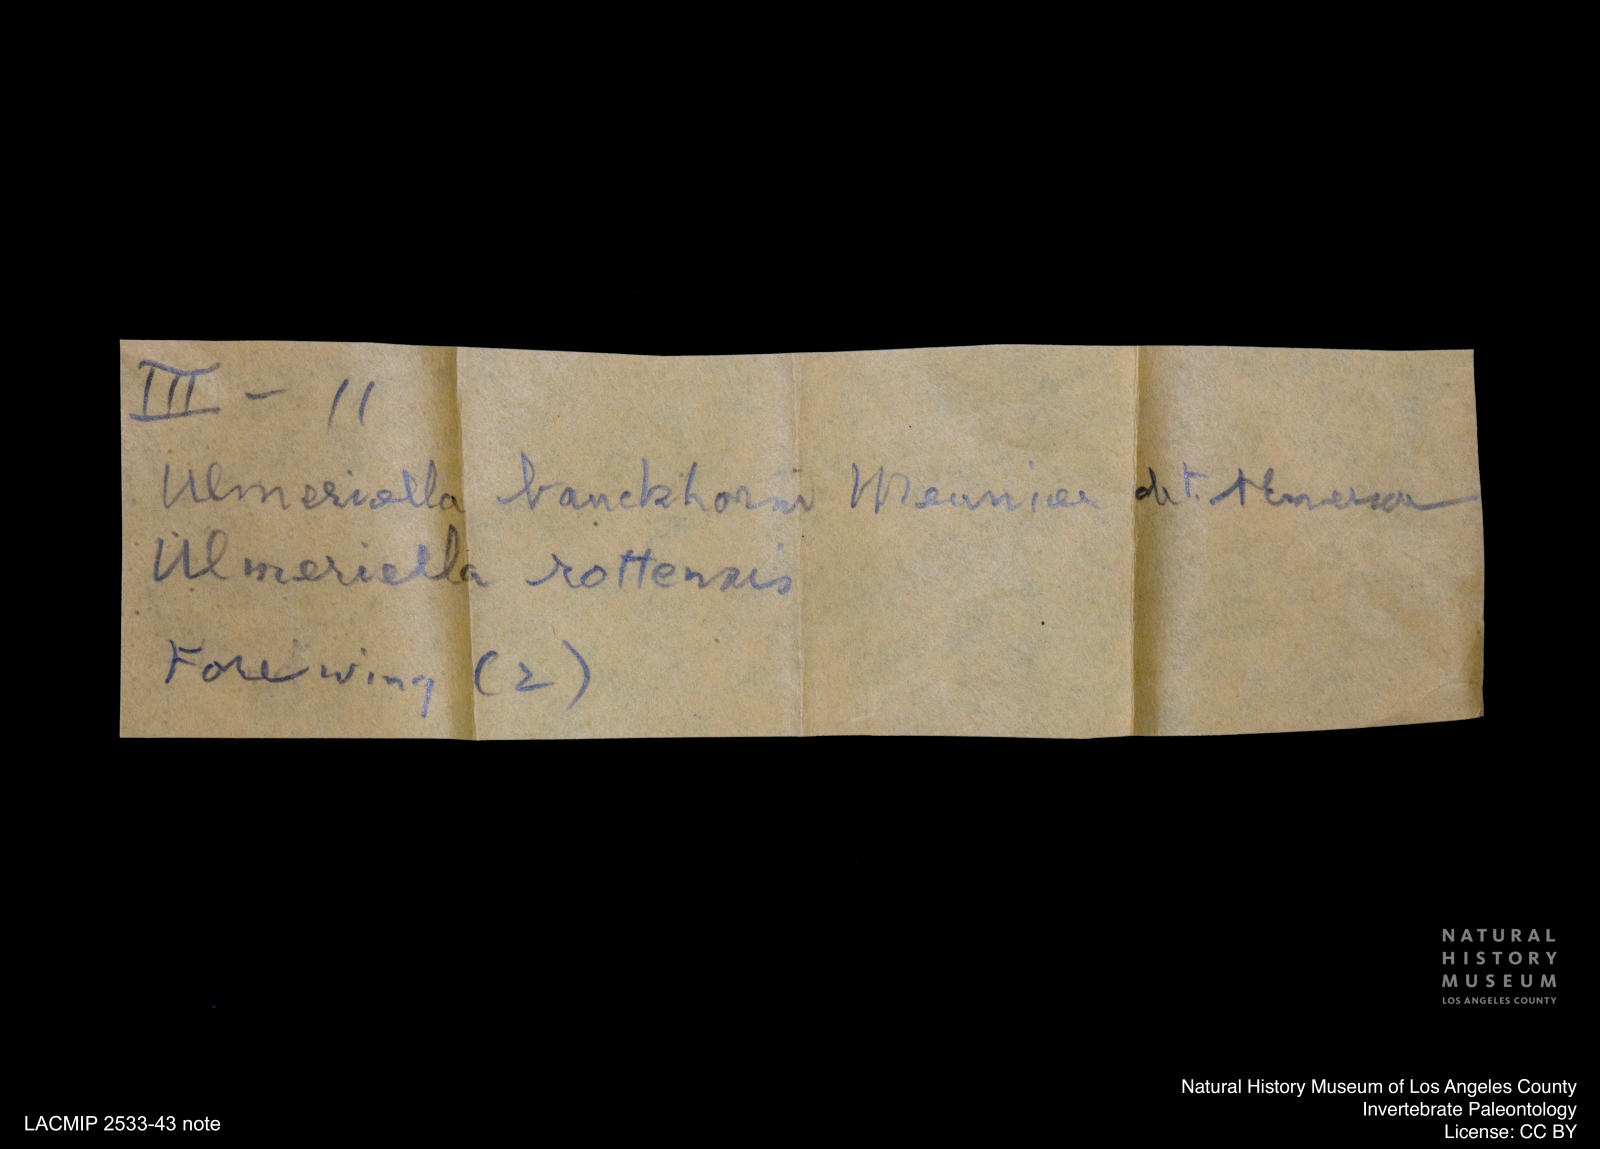 III - 11
Ulmeriella bauckhorni Meunier det. A Emerson
Ulmeriella rottensis
Forewing (2)
NATURAL
HISTORY
MUSEUM
LOS ANGELES COUNTY
Natural History Museum of Los Angeles County
Invertebrate Paleontology
License: CC BY
LACMIP 2533-43 note